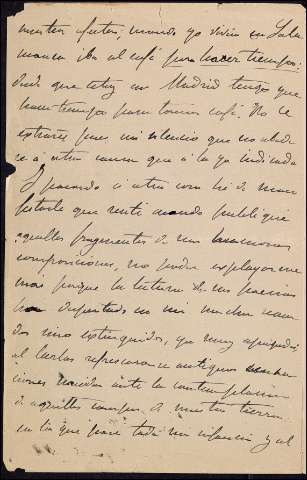 cuando yo vivía en Sala
manca iba al café para hacer tiempo;
desde que estoy en Madrid tengo que
hacer tiempo para tomar café. No te
extrañe pues mi silencio que no obede
ce a otra causa que a la ya indicada
Y pasando a otra cosa he de mani
festarle que sentí cuando publiqué
aquellos fragmentos de sus
composiciones, no poder explayarme
más porque la lectura de sus poesías
han despertado en mi
dos sino extinguidos, que muy
al leerlas refrescaron antiguas
ciones nacidas ante la contemplación
de aquellos campos de nuestra tierra
en la que pasé toda mi infancia y al